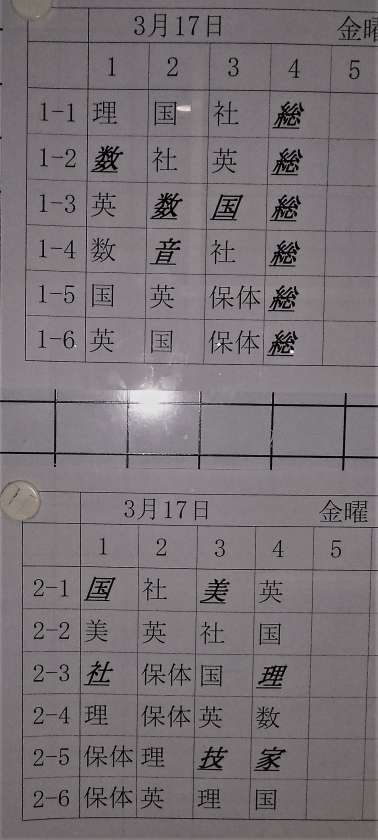 3月17日 金曜
1 2 3 4 5
1-1 理 国 社 総
1-2 数 社 英 総
1-3 英 数 国 総
1-4 数 音 社 総
1-5 国 英 保体 総
1-6 英 国 保体 総
3月17日 金曜
1 2 3 4 5
2-1 国 社 美 英
2-2 美 英 社 国
2-3 社 保体 国 理
2-4 理 保体 英 数
2-5 保体 理 技 家
2-6 保体 英 理 国